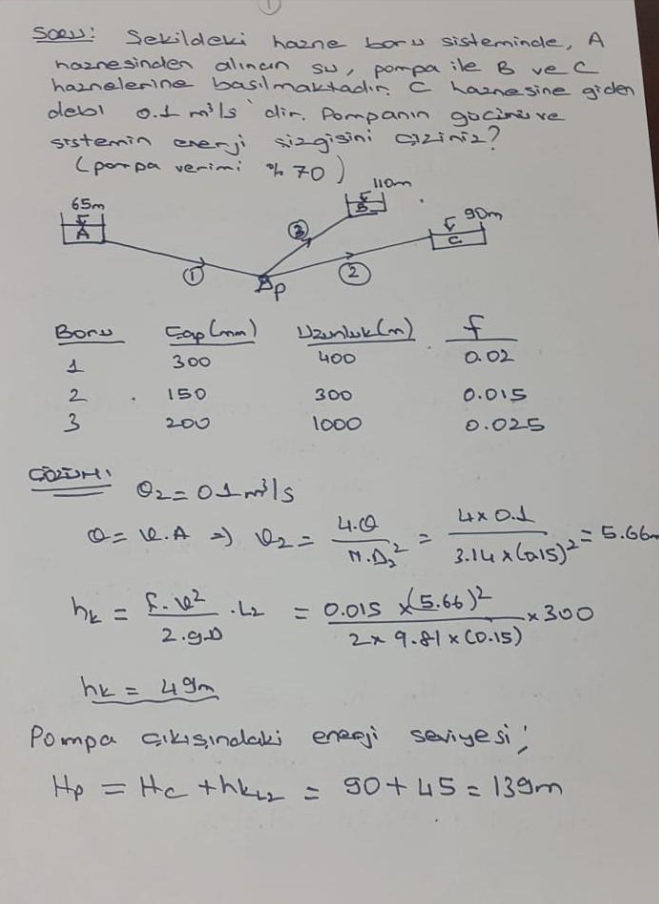 1
Soru: Şekildeki hazne boru sisteminde, A
haznesinden alınan su, pompa ile B ve C
haznelerine basılmaktadır. C haznesine giden
debi 0.1 m³/s 'dir. Pompanın gücünü ve
sistemin enerji çizgisini çiziniz?
(pompa verimi % 70)
65m
110m
90m
A
B
C
3
1
2
p
Boru Çap (mm) Uzunluk (m) f
1 300 400 0.02
2 150 300 0.015
3 200 1000 0.025
ÇÖZÜM:
Q₂ = 0.1 m³/s
Q = V.A ⇒ V₂ = 4.Q / π.D₂² = 4×0.1 / 3.14×(0.15)² = 5.66m
hk = f.V² / 2.g.D .L₂ = 0.015 ×(5.66)² / 2×9.81×(0.15) ×300
hk = 49m
Pompa çıkışındaki enerji seviyesi;
Hp = Hc + hkL2 = 90 + 45 = 139m